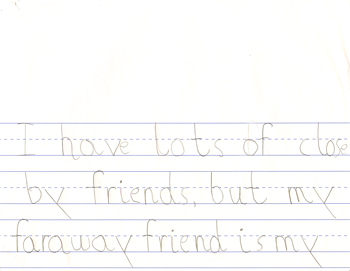 I have lots of close
by friends, but my
faraway friend is my